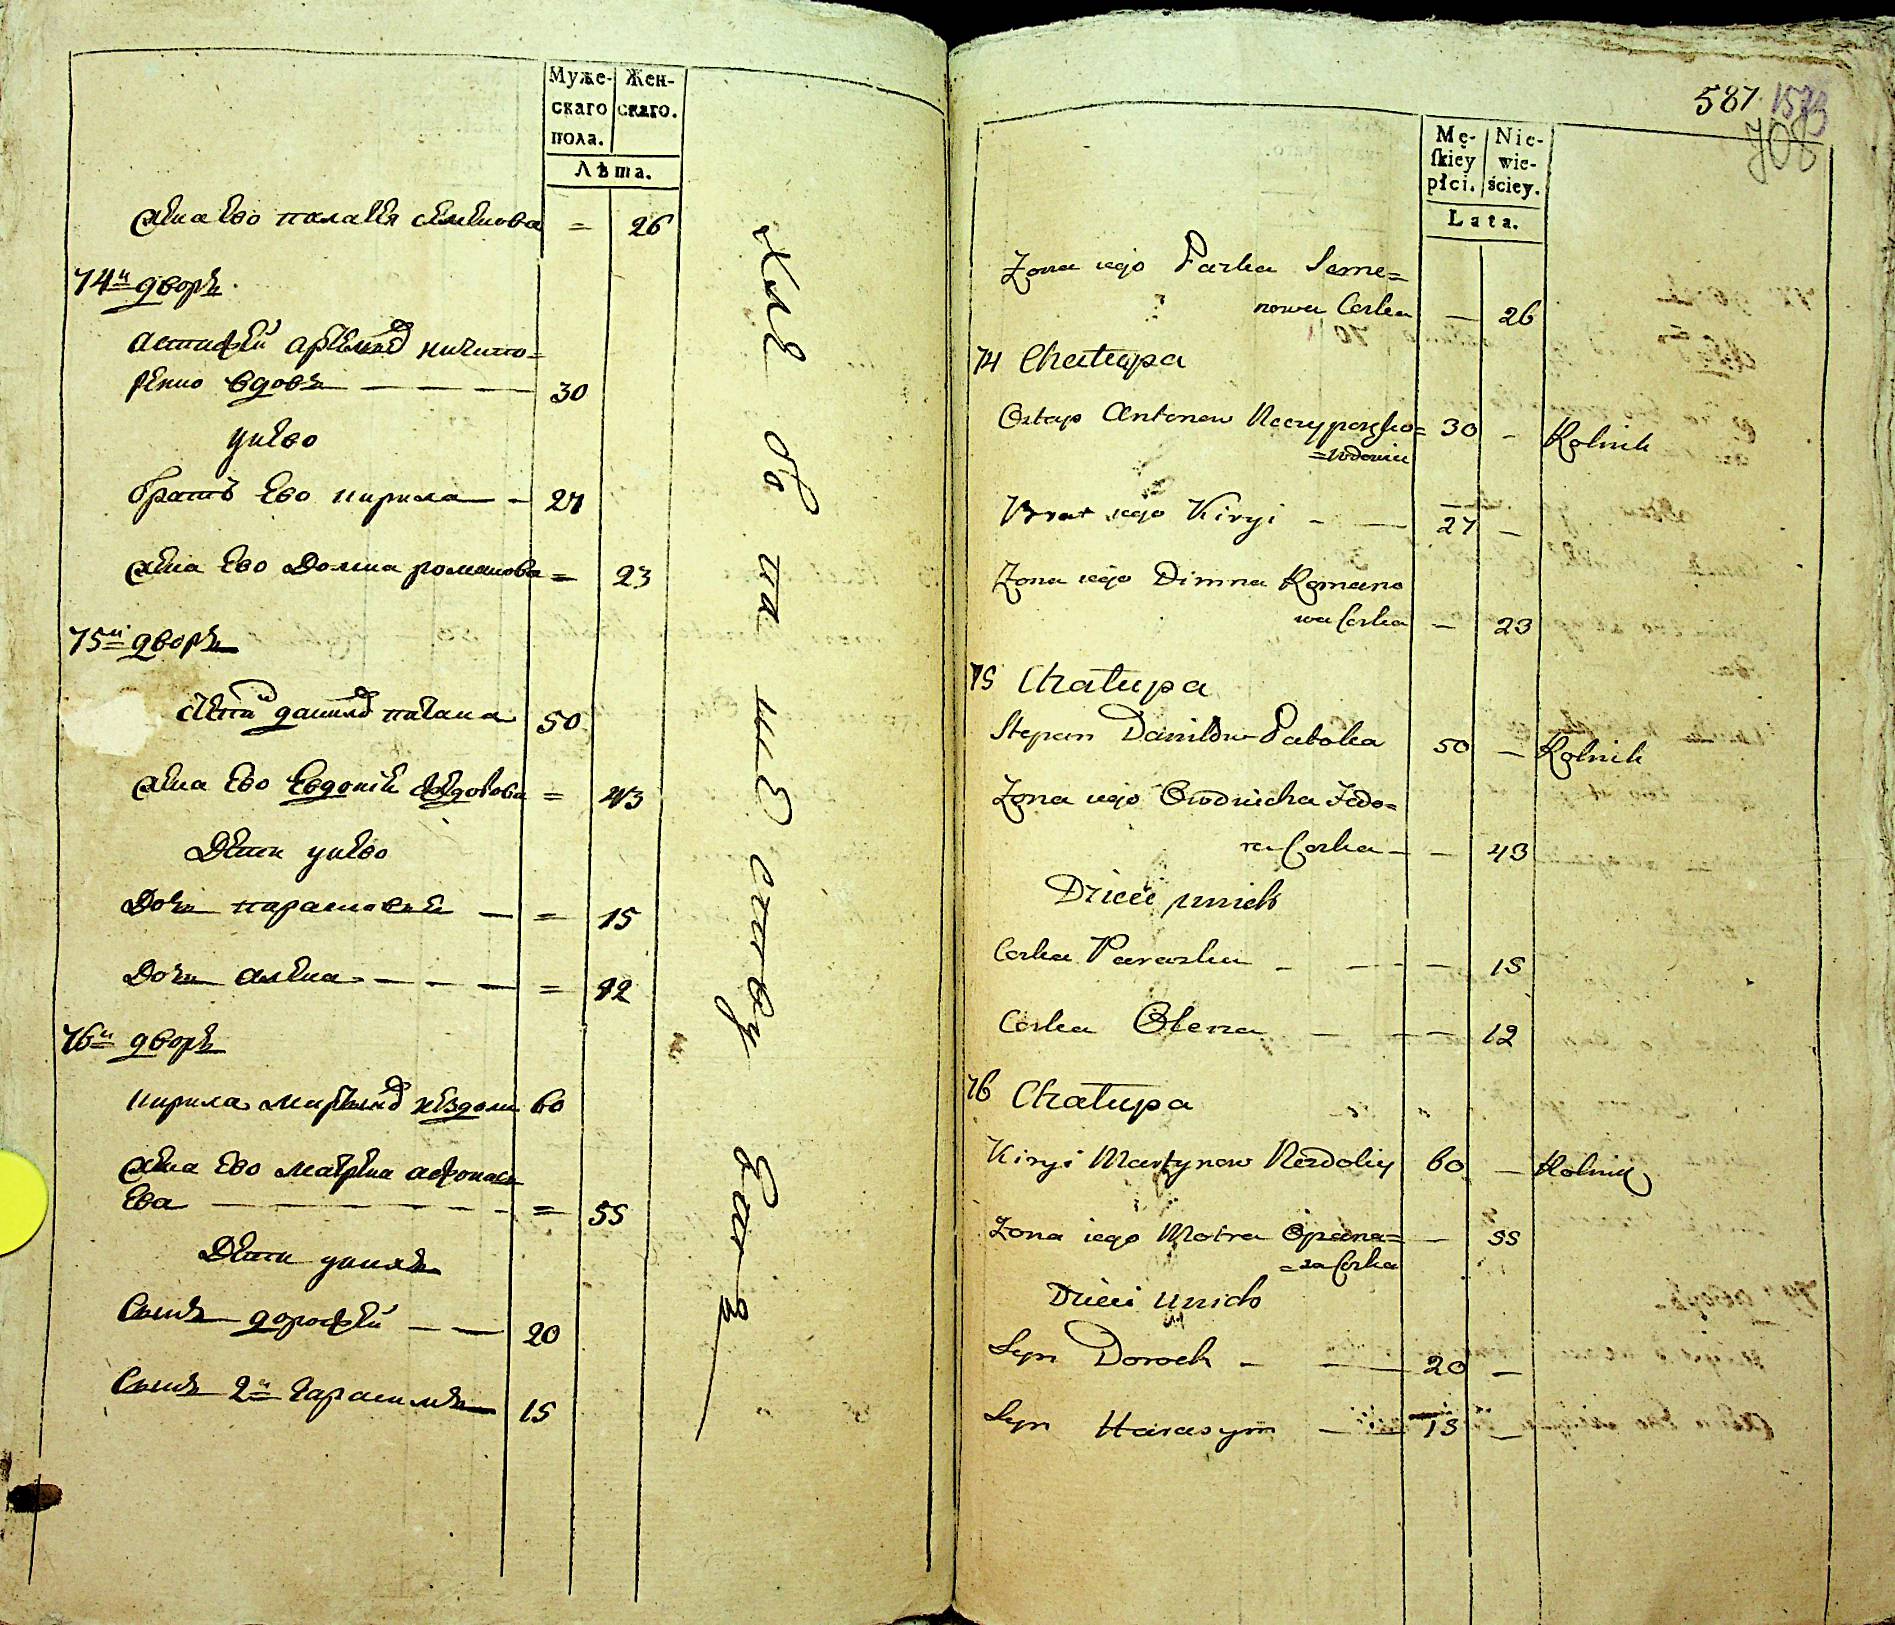 Муже-
скаго
пола.
Жен-
скаго.
Лѣта.
жена ево палагея семенова = 26
74й дворъ
астафей артемовъ ничипо=
ренко вдовъ — — — 30
унево
братъ ево кирила — - 27
жена ево домна романова = 23
75й дворъ
данилов 50
жена ево евдокия федорова = 43
Дети унево
Дочь парасковея — = 15
Дочь алена - - - = 12
76й дворъ
кирила 60
жена ево матрена афонась
ева — = 55
Дети унихъ
Сынъ дорофей — — 20
Сынъ 2й гарасимъ 15
хлебопашеству
587. 1573
708
Mę-
ſkiey
płci.
Nie-
wie-
ściey.
Lata.
Zona iego Paraska Seme=
nowa Corka — 26
74 Chałupa
Ostap Antonow Neczyporenko= 30 - Rolnik
=wdowiec
Brat iego Kiryi - — 27 —
Zona iego Dimna Romano
wa Corka — 23
75 Chałupa
Stepan Daniłow Patoka 50 — Rolnik
Zona iego Owdwicha Fedo=
ra Corka — — 43
Dzieci u nich
Corka Paraska - — — 15
Corka Olena — — — 12
76 Chałupa
Kiryi Martynow Nezdoliy 60 — Rolnik
Zona iego Motra Opana= — 55
=sa Corka
Dzieci u nich
Syn Doroch - — 20 —
Syn Harasym — — 15 —